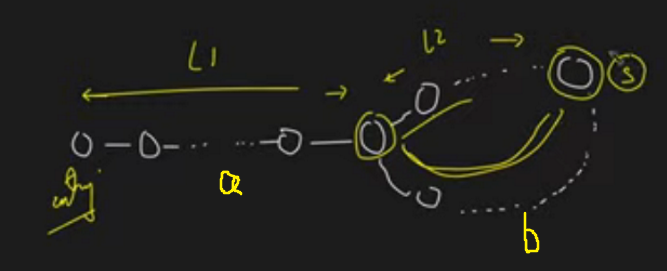 L1
L2
S
a
entry
b